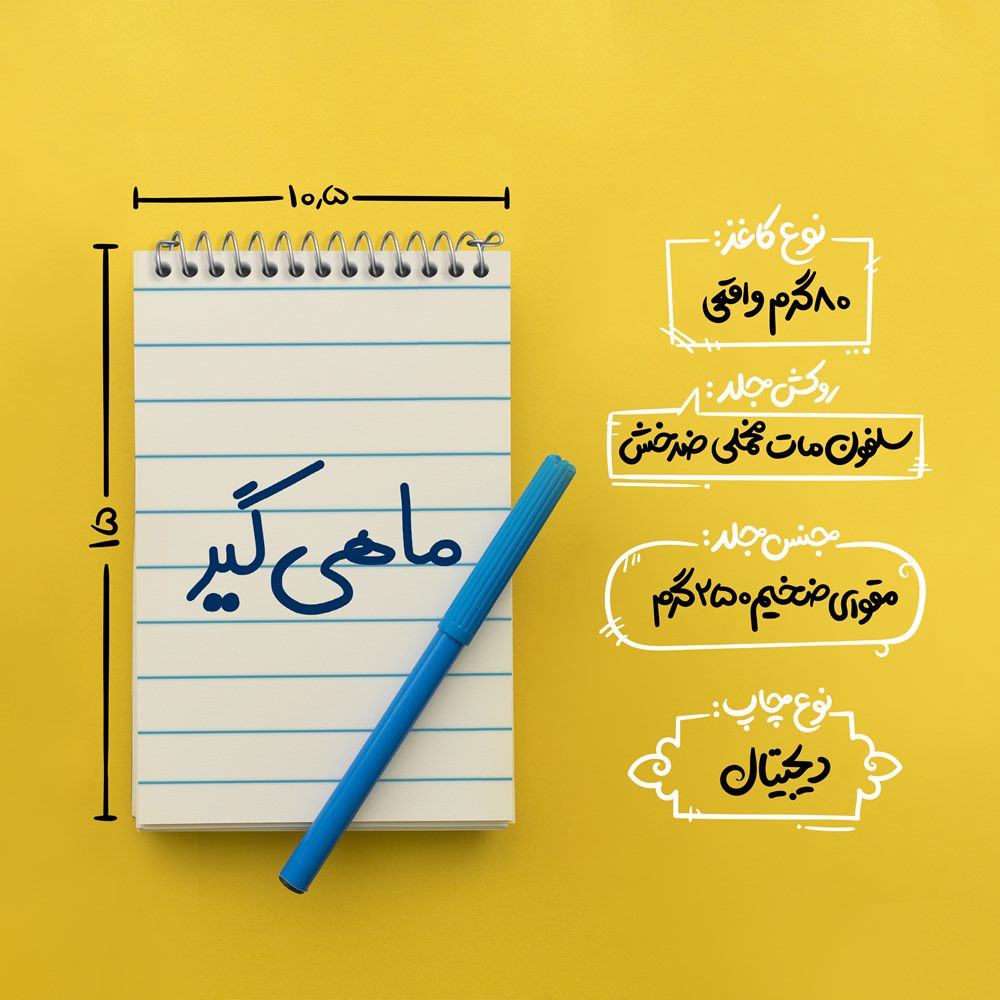 ۱۰٫۵
۱۵
ماهی‌گیر
نوع کاغذ:
۸۰گرم واقعی
روکش جلد:
سلفون مات مخملی ضدخش
جنس جلد:
مقوای ضخیم ۲۵۰گرم
نوع چاپ:
دیجیتال